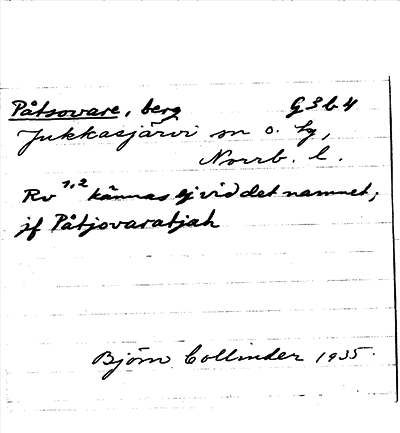 Påtsovare, berg G3b4
Jukkasjärvi sn o. lg,
Norrb. l.
Rv 1,2 kännas ej vid det namnet;
jf Påtjovaratjah
Björn Collinder 1935.